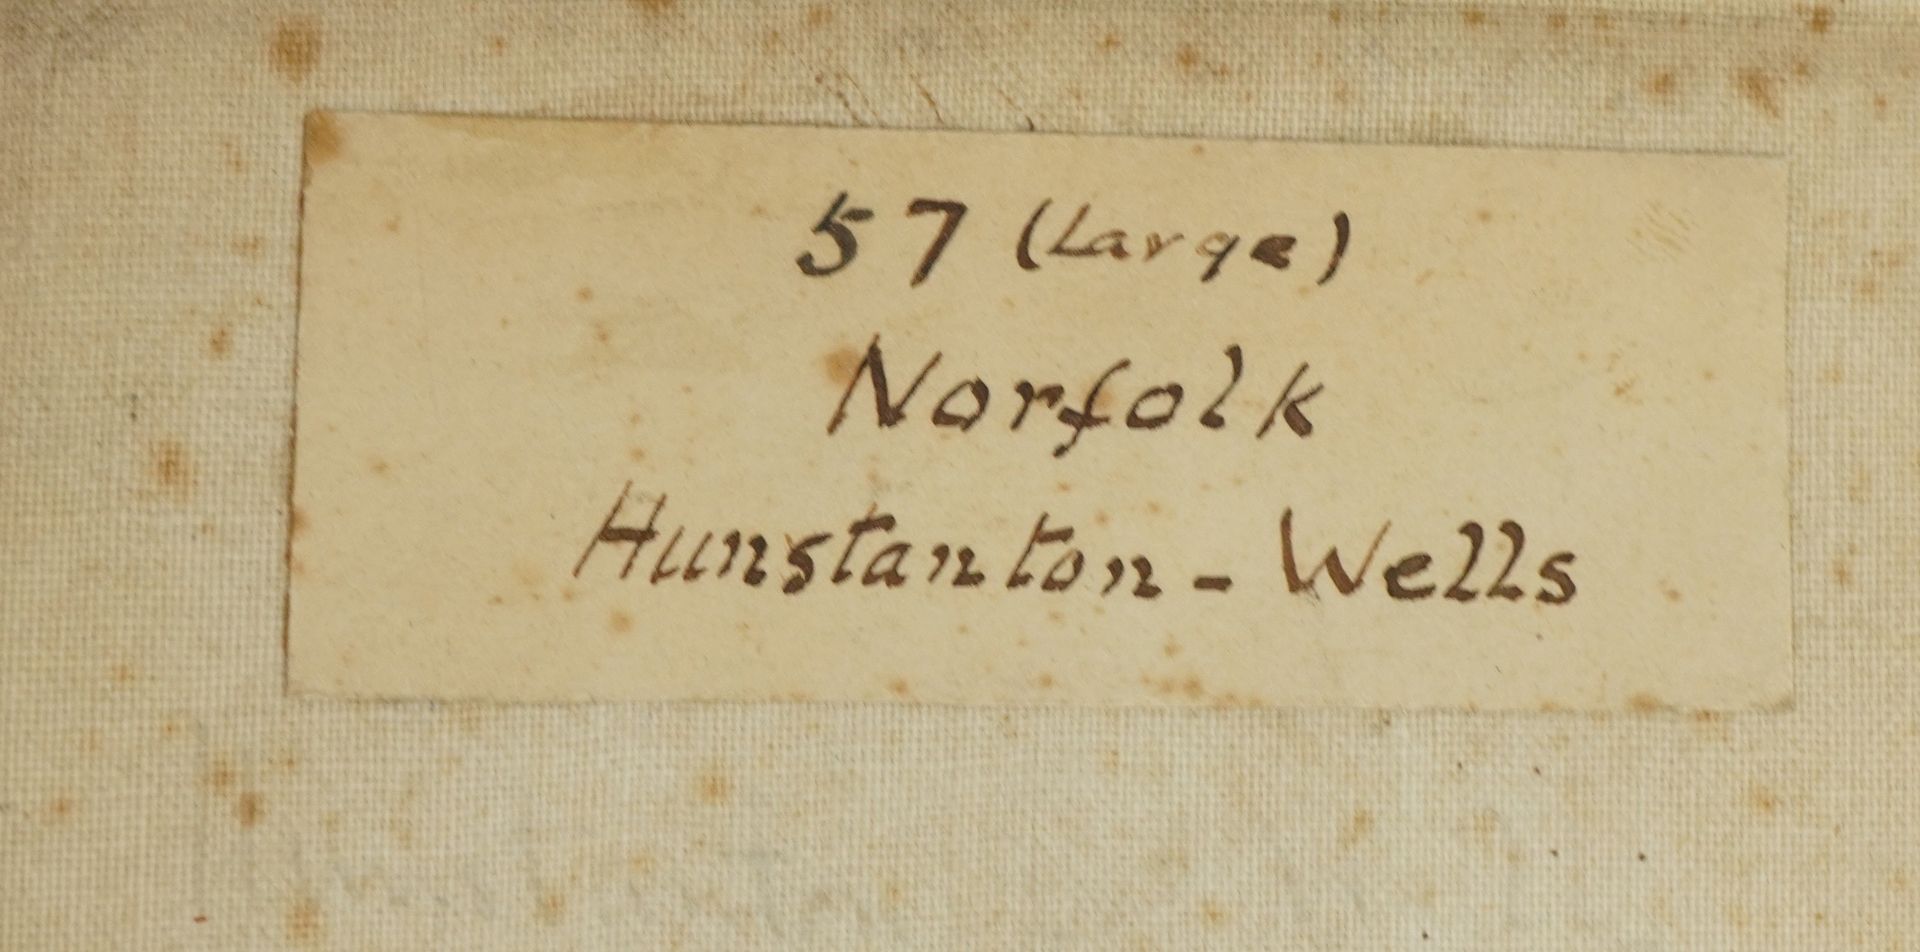 57 (Large)
Norfolk
Hunstanton - Wells